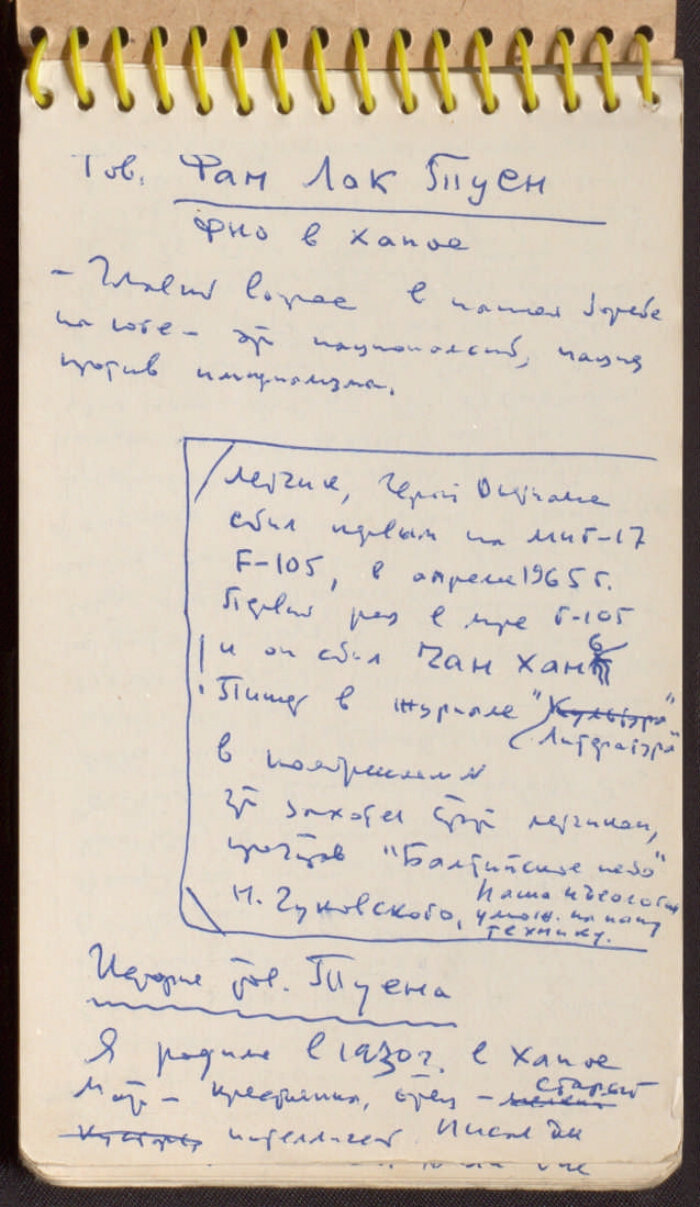 Тов. Фан Лак Туен
ФНО в Ханое
– Главный вопрос в нашей борьбе
на юге – это национальный, нация
против империализма.
Летчик, Герой Вьетнама
сбил первым на МИГ-17
F-105, в апреле 1965 г.
Первый раз в мире F-105
и он сбил Чан Хан
Пишет в журнале "Культура"
Литература"
в последнем №
Это захотел стать летчиком,
прочитав "Балтийское небо"
Н. Чуковского, Наша идеология
умнож. на нашу
технику.
История тов. Туена
Я родился в 1930 г. в Ханое
Мать – крестьянка, отец – старый
интеллигент. Писал